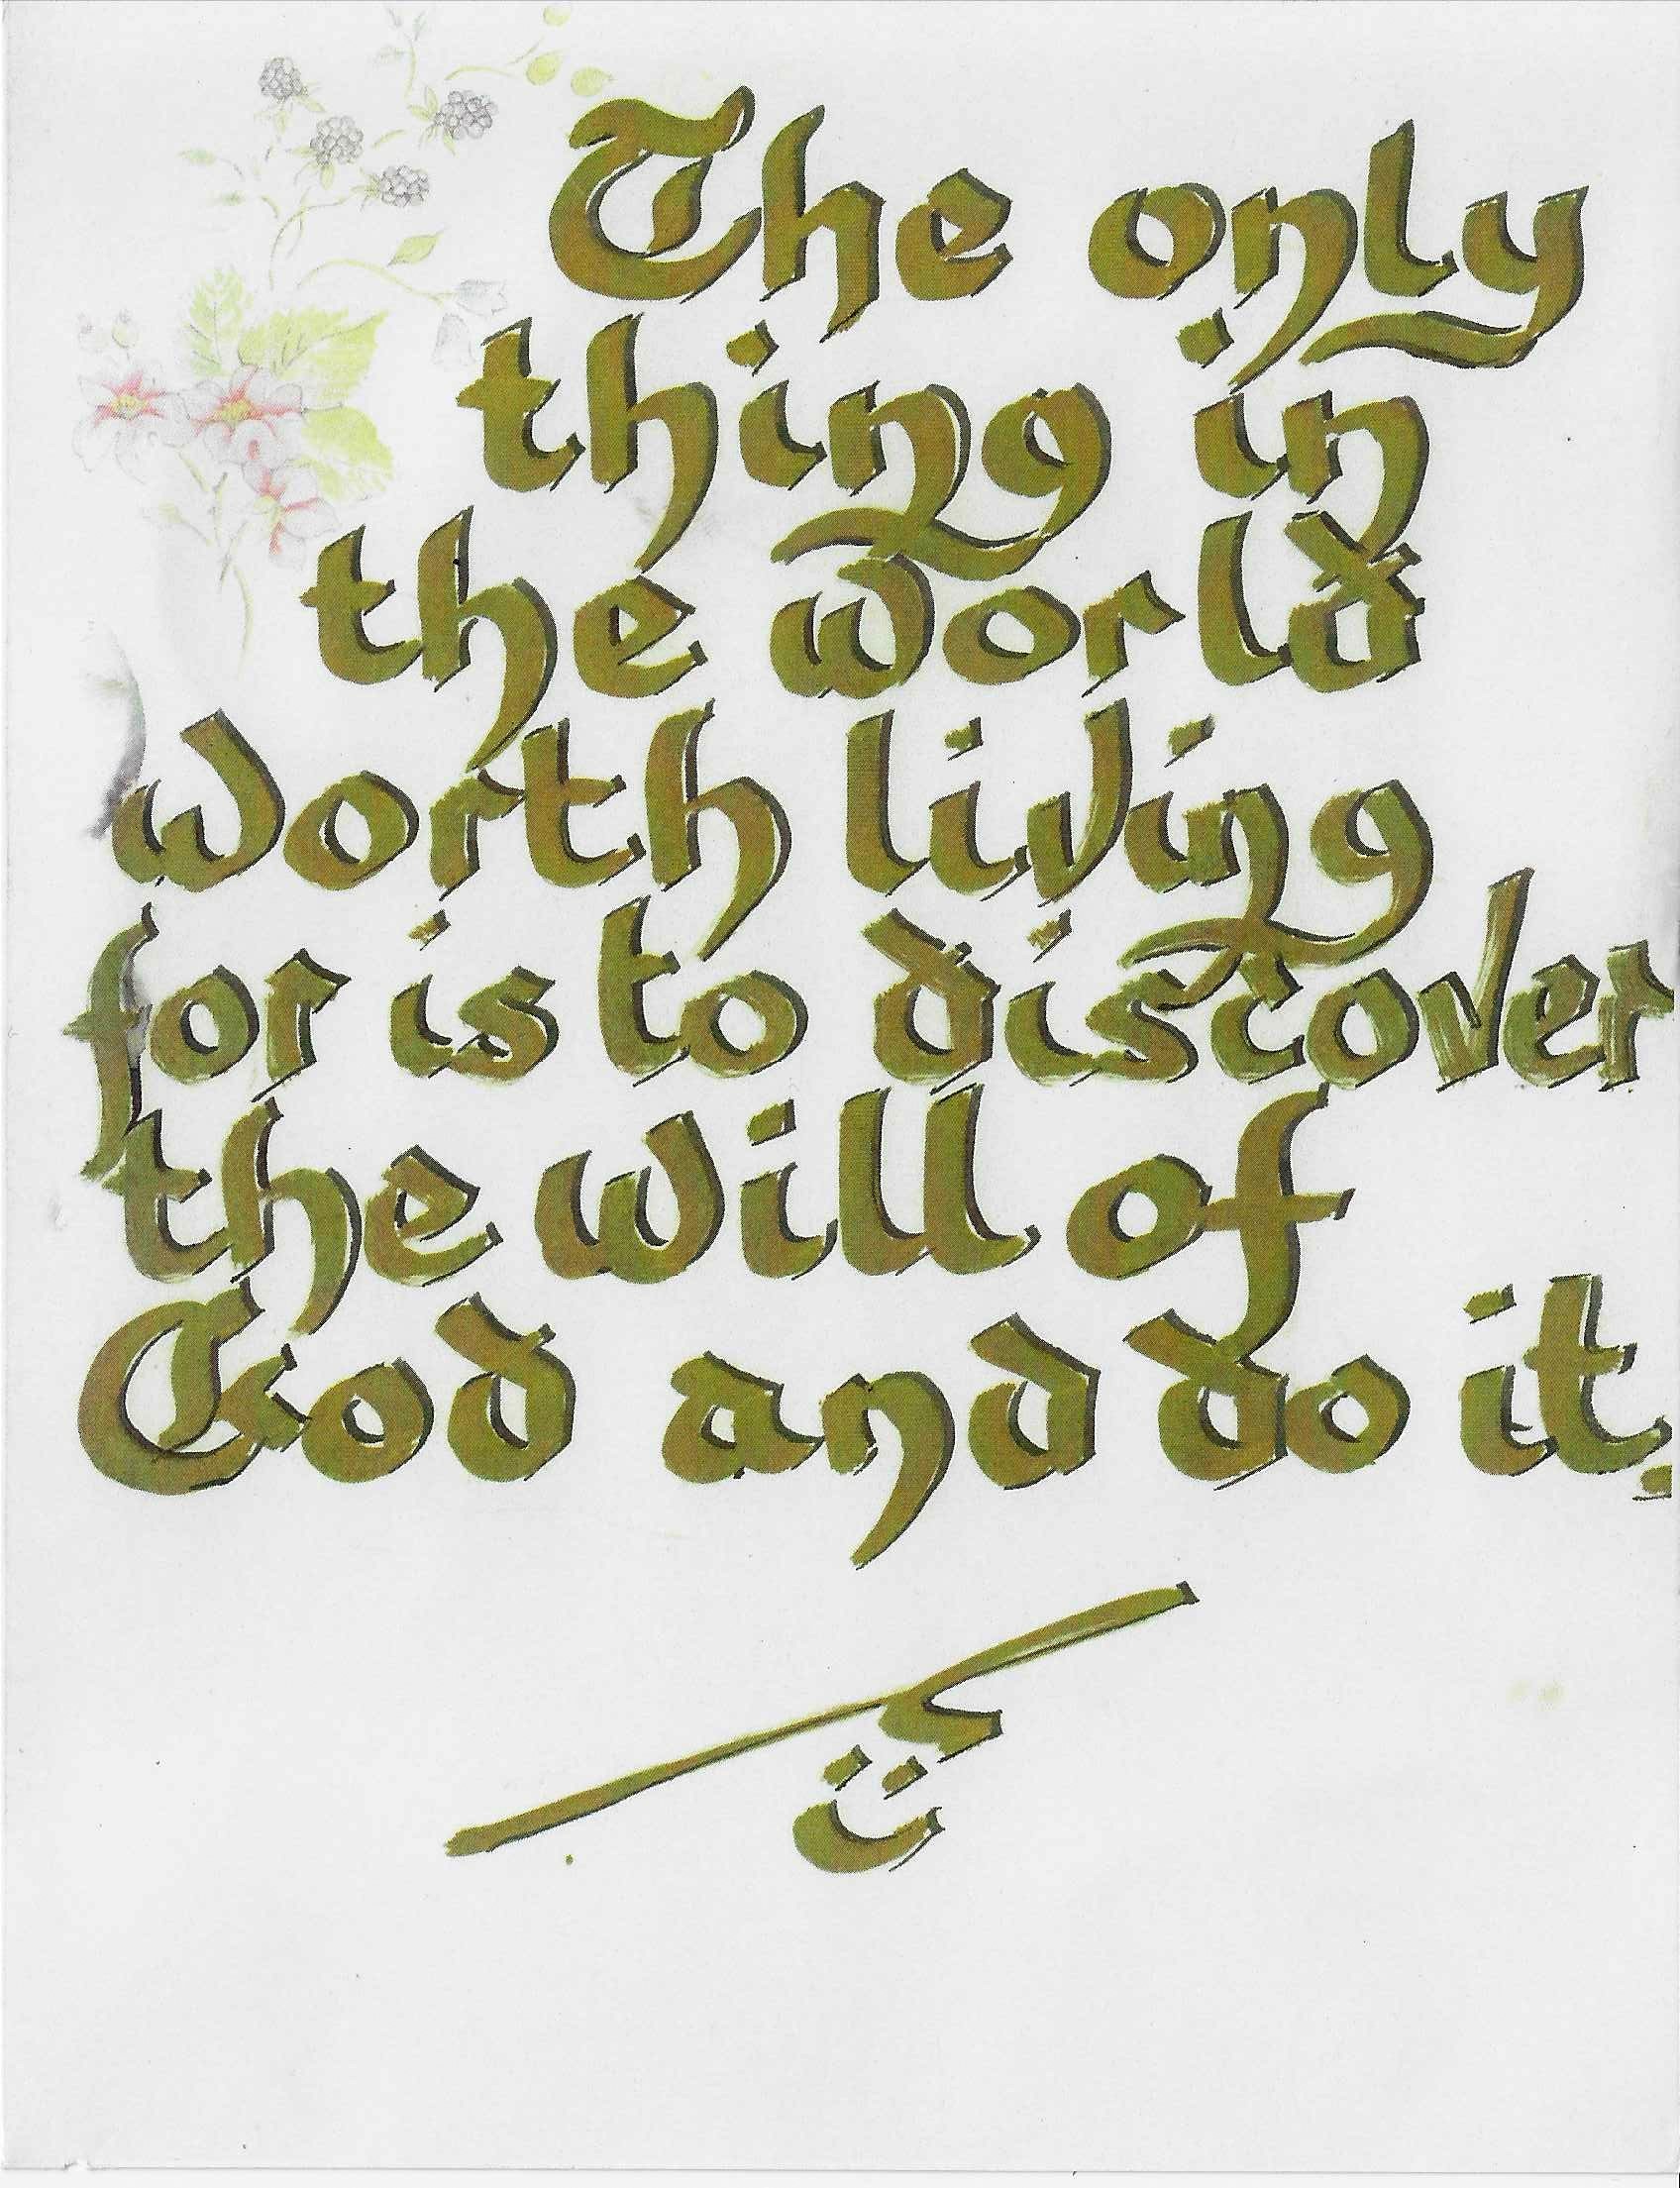 The only
thing in
the world
worth living
for is to discover
the will of
God and do it.